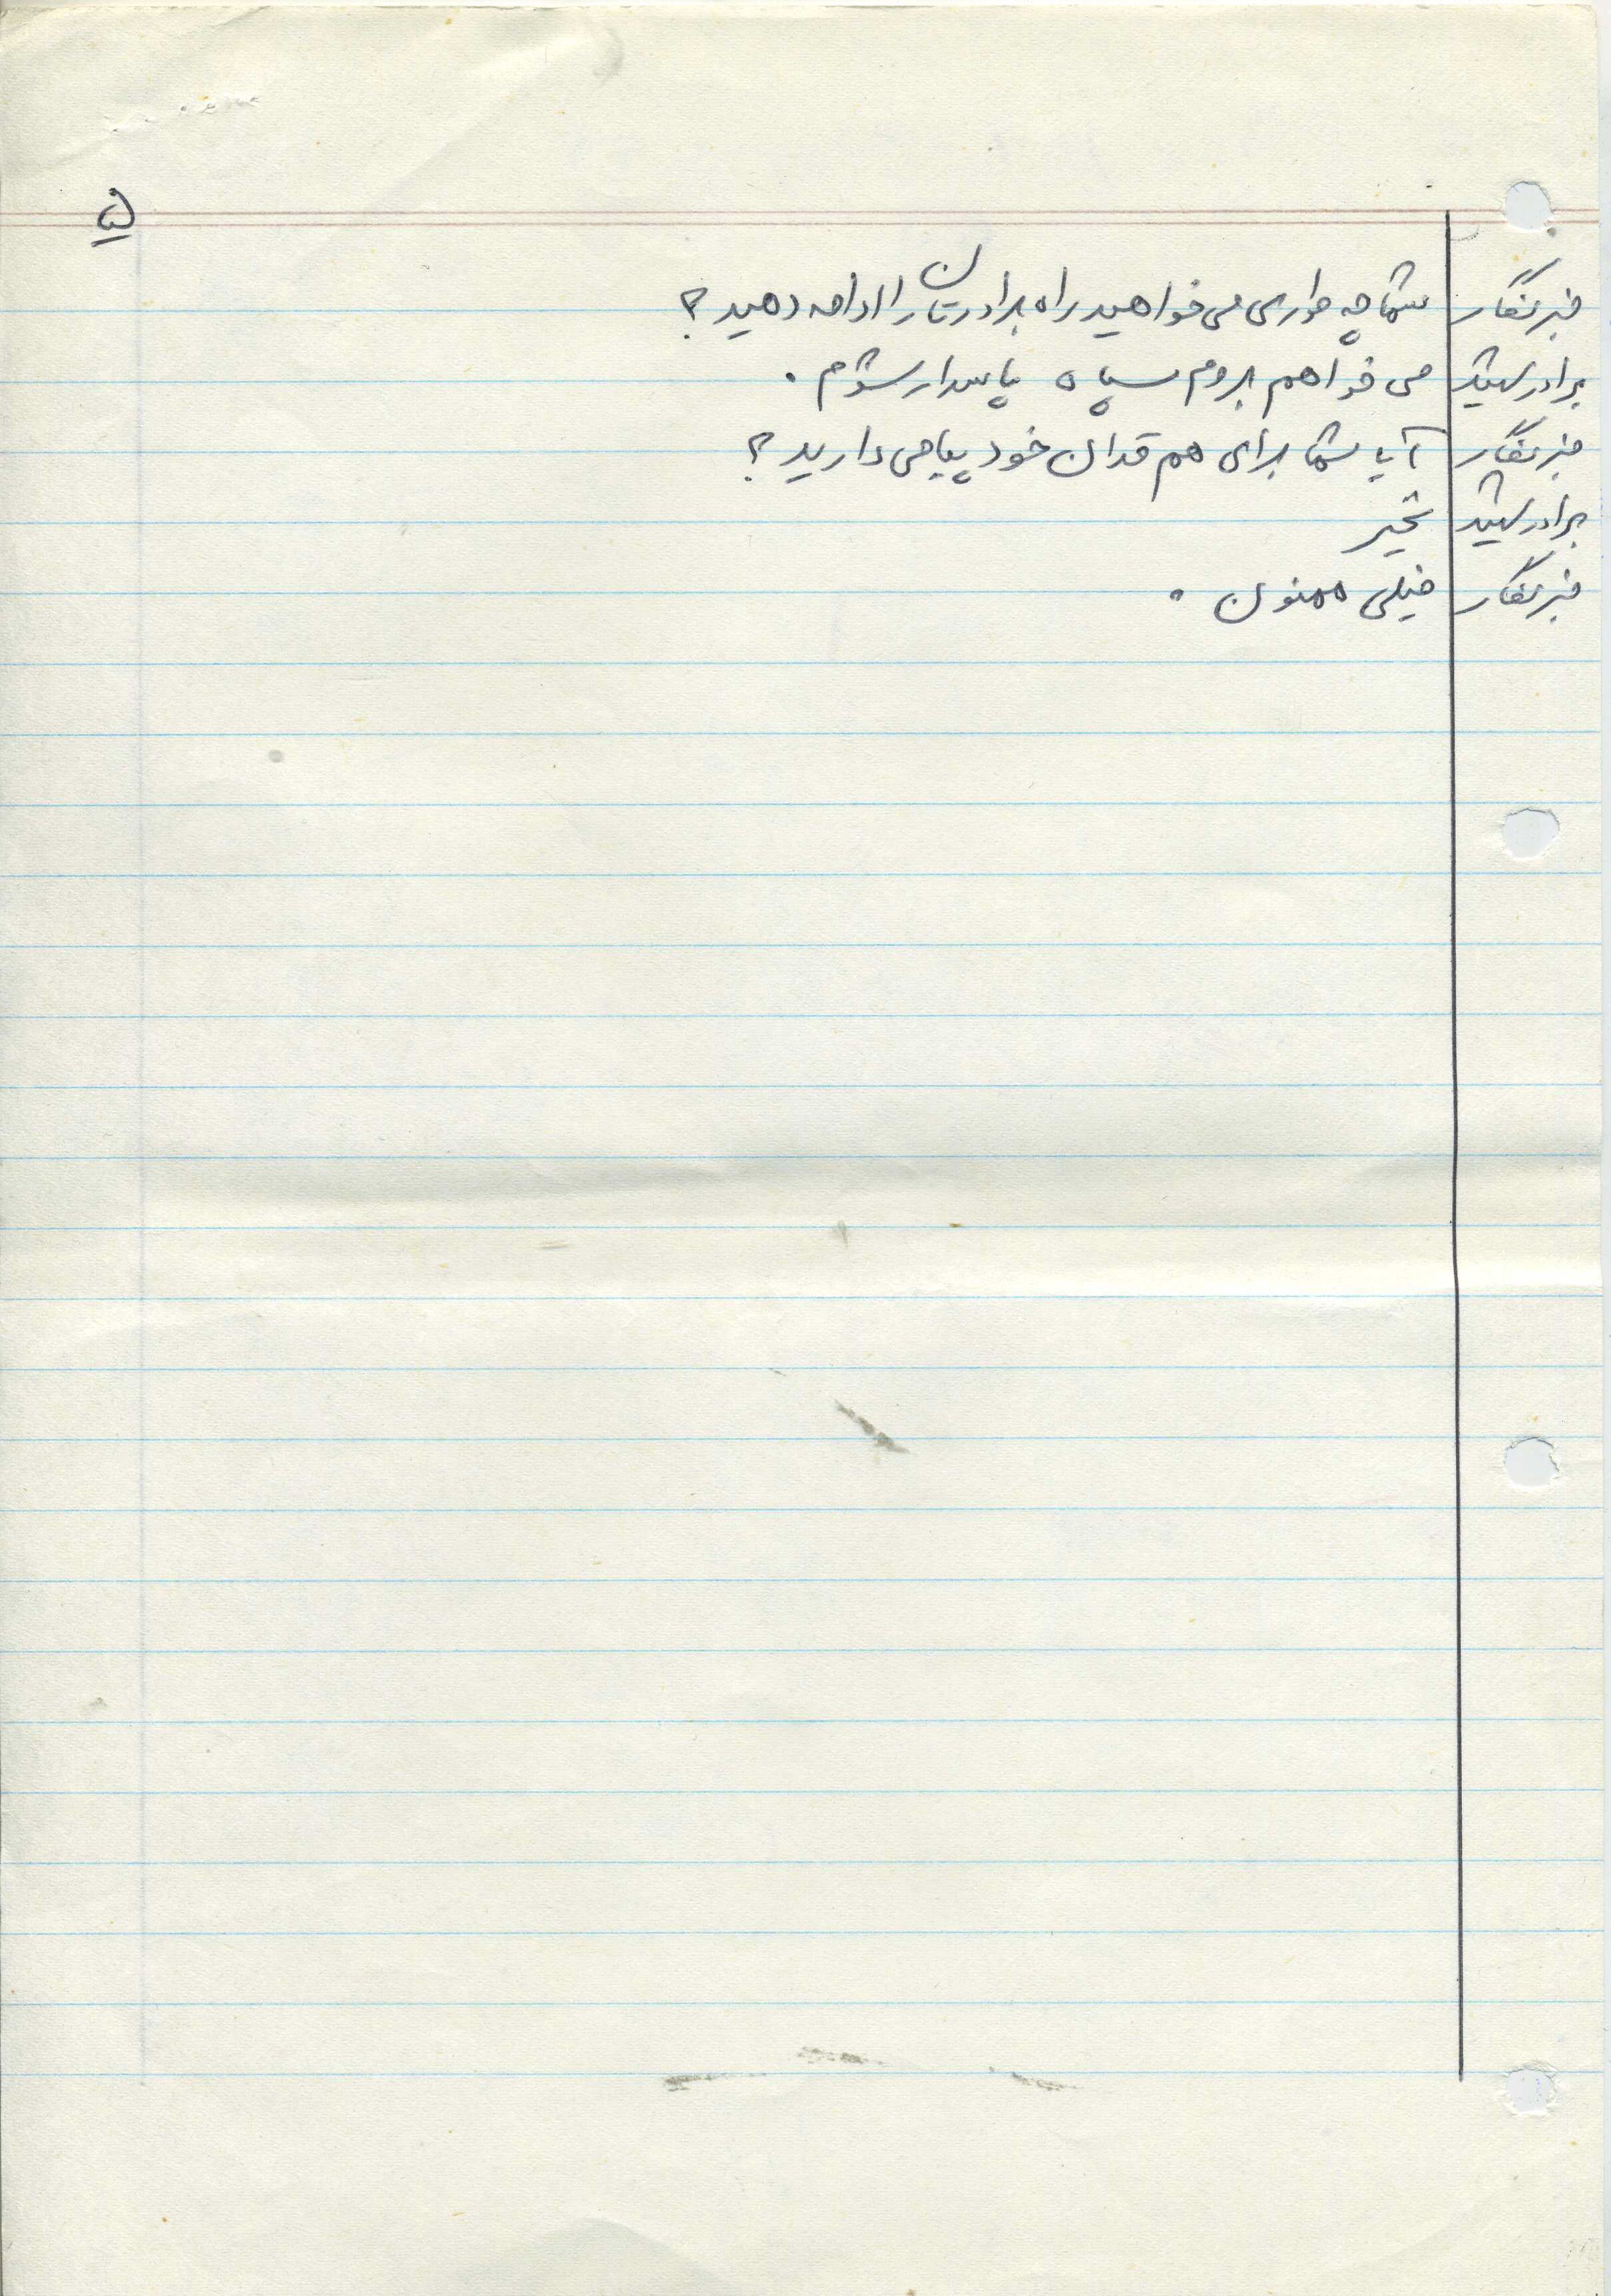 ۵
خبرنگار شما چه طوری می خواهید راه برادرتان را ادامه دهید؟
برادر شهید می خواهم بروم سپاه پاسدار شوم.
خبرنگار آیا شما برای هم قدان خود پیامی دارید؟
برادر شهید نخیر
خبرنگار خیلی ممنون.